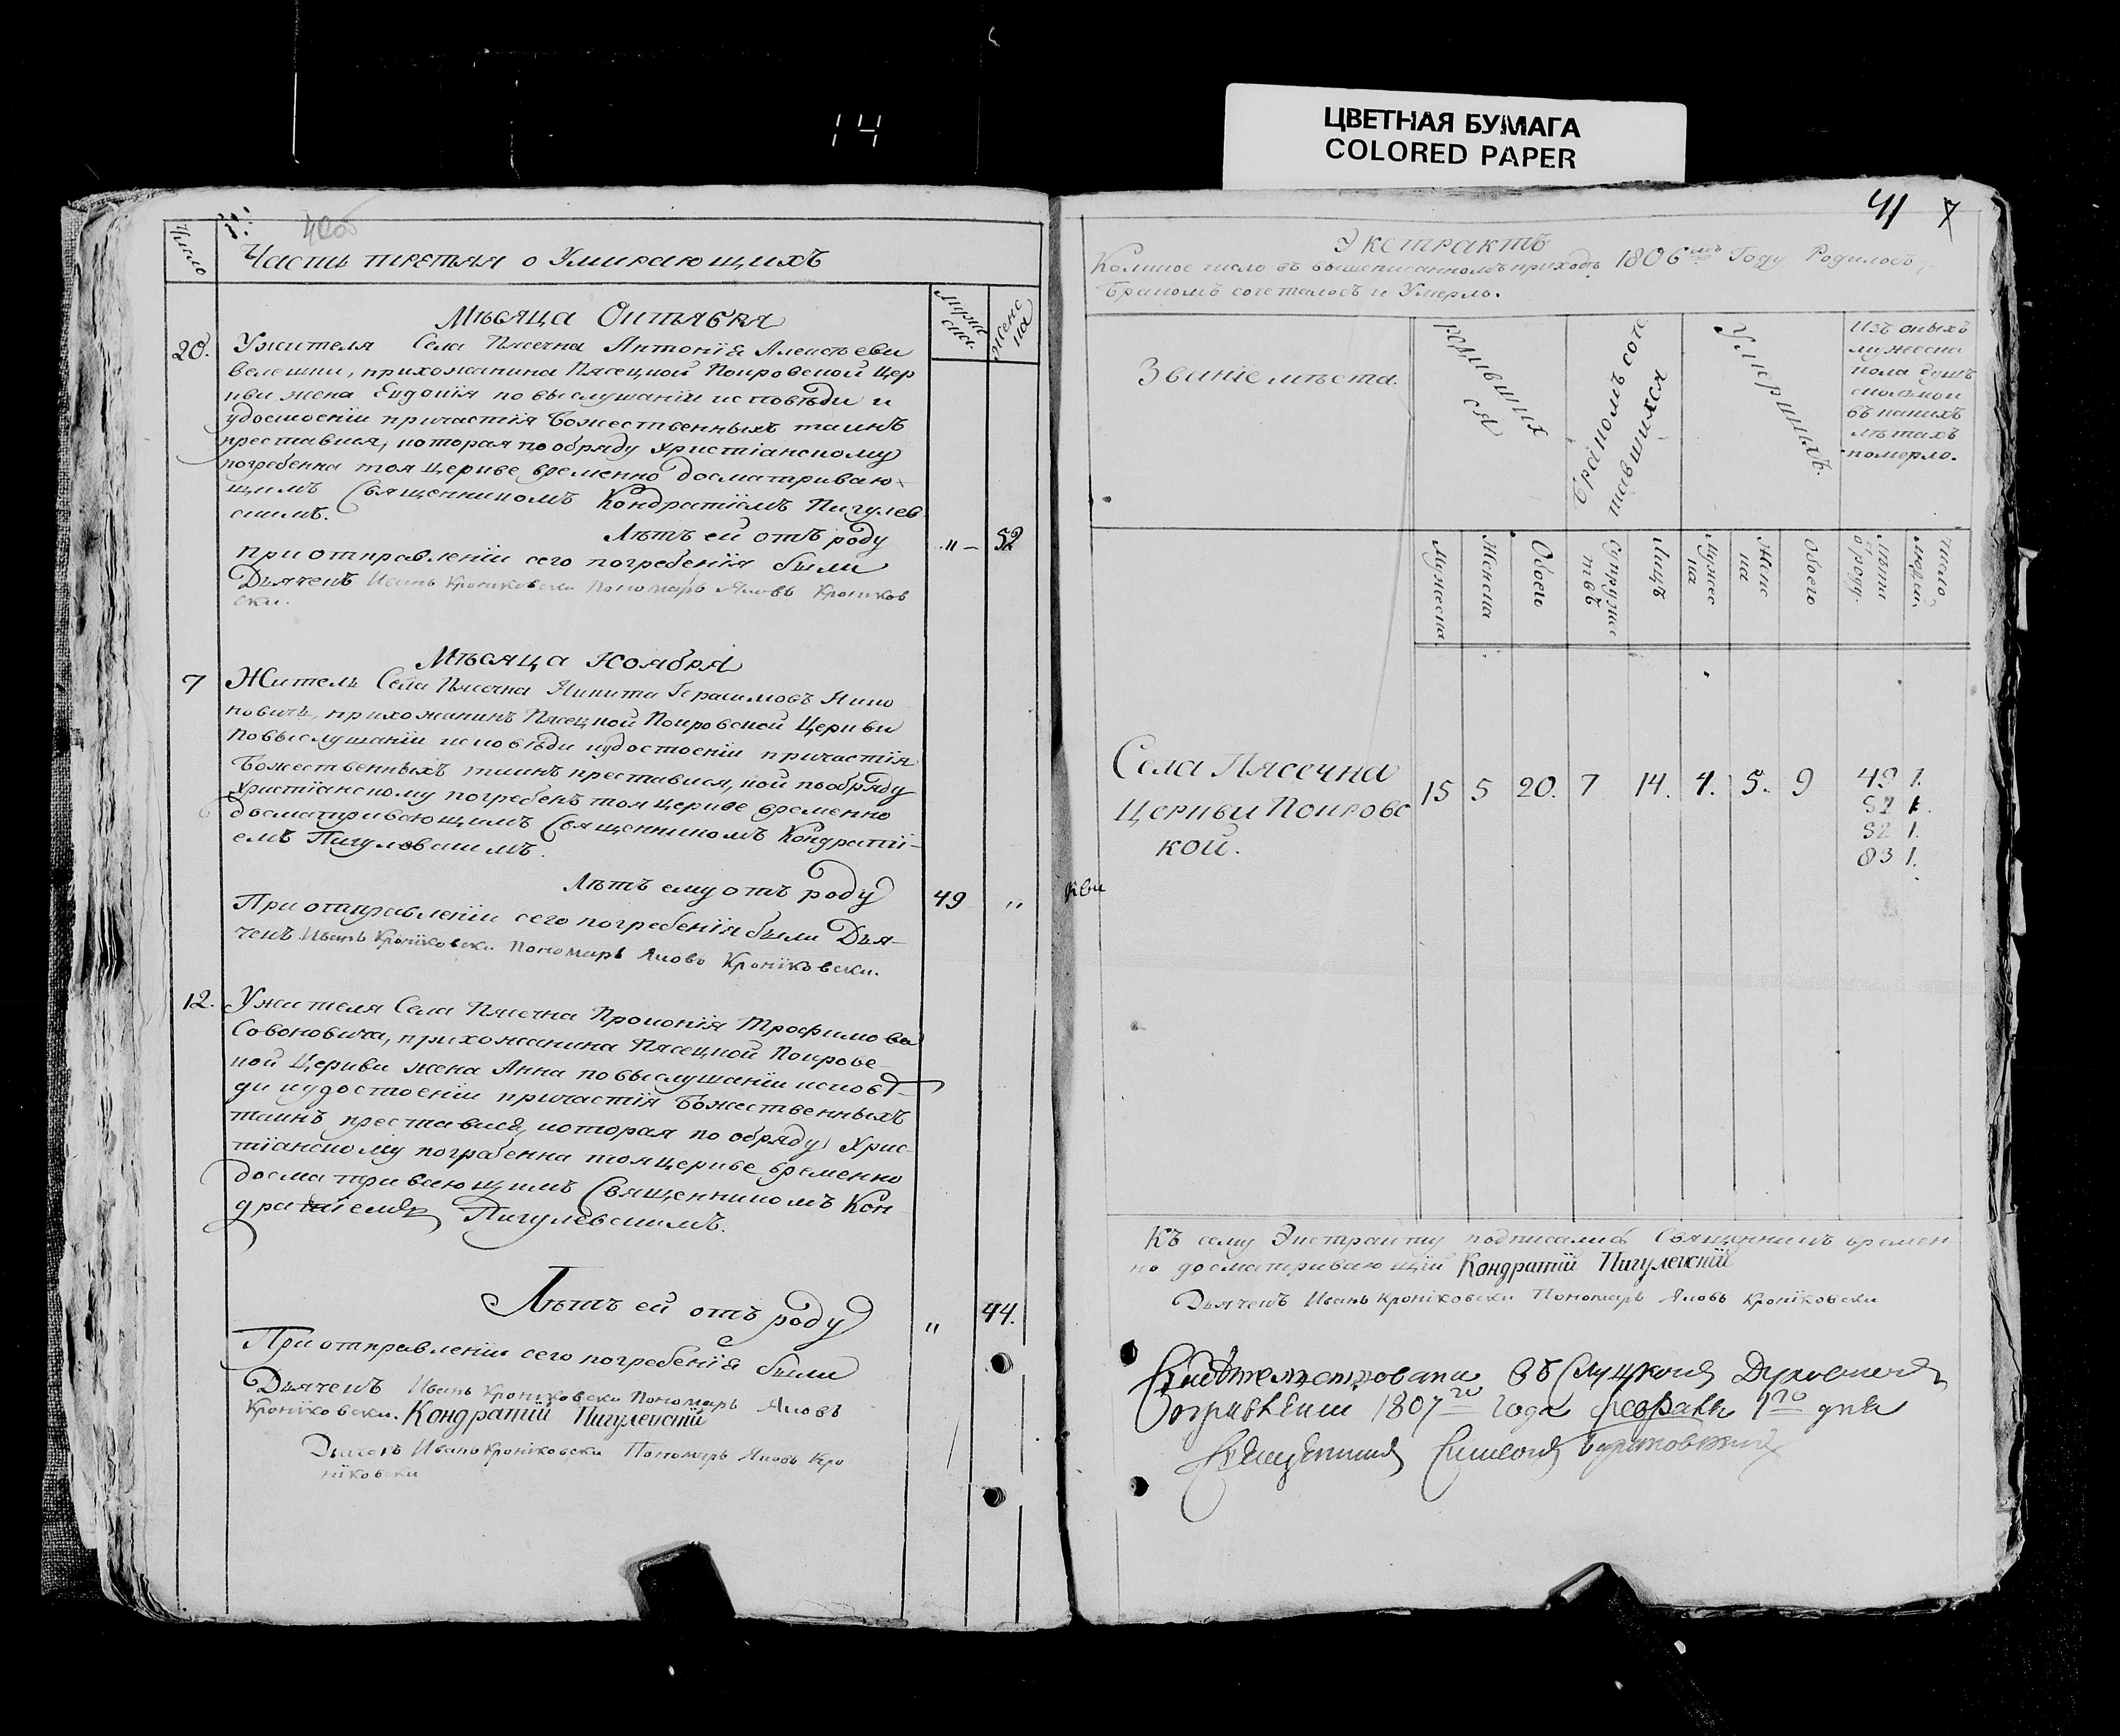 14
ЦВЕТНАЯ БУМАГА
COLORED PAPER
Число
Часть третья о Умирающихъ
Мужеска
Женска
Мѣсяца Октября
20. Ужителя Села Пясечна Антонія Алексѣева
прихожанина Пясецкой Покровской Цер
кви жена Евдокія по выслушаніи исповѣди и
удостоеніи причастія Божественныхъ таинъ
преставися, которая по обряду Христіанскому
погребенна тоя церкве временно досматриваю
щимъ Священникомъ Кондратіемъ Пигулев
скимъ.
Лѣтъ ей отъ роду " 52
При отправленіи сего погребенія были
Дьячекъ Иванъ Кроніковски Пономаръ Яковъ Кроніков
ски.
Мѣсяца Ноября
7 Житель Села Пясечна Никита Герасимовъ
прихожанинъ Пясецкой Покровской Церкви
по выслушаніи исповѣди и удостоеніи причастія
Божественныхъ таинъ преставися, кой по обряду
Христіанскому погребенъ тоя церкве временно
досматривающимъ Священникомъ Кондраті-
емъ Пигулевскимъ.
Лѣтъ ему отъ роду 49 "
При отправленіи сего погребенія были Дья-
чекъ Иванъ Кроніковски Пономаръ Яковъ Кроніковски.
12. Ужителя Села Пясечна Прокопія Трофимова
Совоновича, прихожанина Пясецкой Покровс-
кой Церкви жена Анна по выслушаніи исповѣ-
ди и удостоеніи причастія Божественныхъ
таинъ преставися, которая по обряду Хрис-
тіанскому погребенна тоя церкве временно
досматривающимъ Священникомъ Кон
дратіемъ Пигулевскимъ.
Лѣтъ ей отъ роду " 44.
При отправленіи сего погребенія были
Дьячекъ Иванъ Кроніковски Пономаръ Яковъ
Кроніковски. Кондратій Пигулевскій
Дьячекъ Иванъ Кроніковски Пономаръ Яковъ Кро
ніковски
41
Экстрактъ
Коликое число въ вышеписанномъ приходѣ 1806мъ Году Родилось,
Бракомъ сочеталось и Умерло.
Званіе мѣста.
родивших
ся
Бракомъ соче
тавшихся
Умершихъ.
Изъ оныхъ
мужеска
пола душъ
сколько
въ какихъ
лѣтахъ
померло.
Мужеска
Женска
Обоего
Супружес
твъ
Лицъ
Мужес
ка
Женс
ка
Обоего
Лѣта
о роду.
Число
Села Пясечна
Церкви Покровс
кой.
15 5 20. 7 14. 4. 5. 9
49 1.
52 1.
52 1.
83 1.
кви
Къ сему Экстракту подписались Священникъ времен
но досматривающій Кондратій Пигулевскій
Дьячекъ Иванъ Кроніковски Пономаръ Яковъ Кроніковски
Свидѣтельствована въ Слуцкомъ Духовномъ
Правленіи 1807го года февраля 1го дня
Священникъ Симеонъ